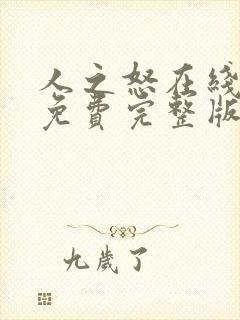 人之怒在线
免费完整版
九歲了